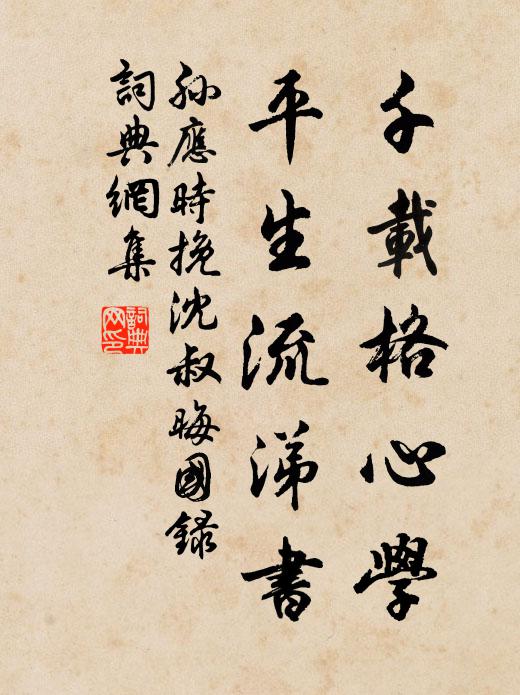 千載格心學
平生流涕書
孫應時挽沈叔晦國錄
詞典網集
詞典
网印